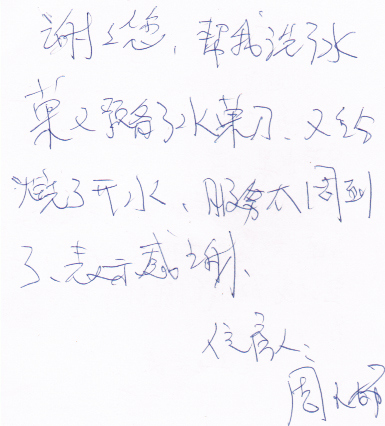 谢谢您，帮我洗了水
菓又预备了水菓刀、又给
烧了开水、服务太周到
了、表示感谢、
住客人：
周